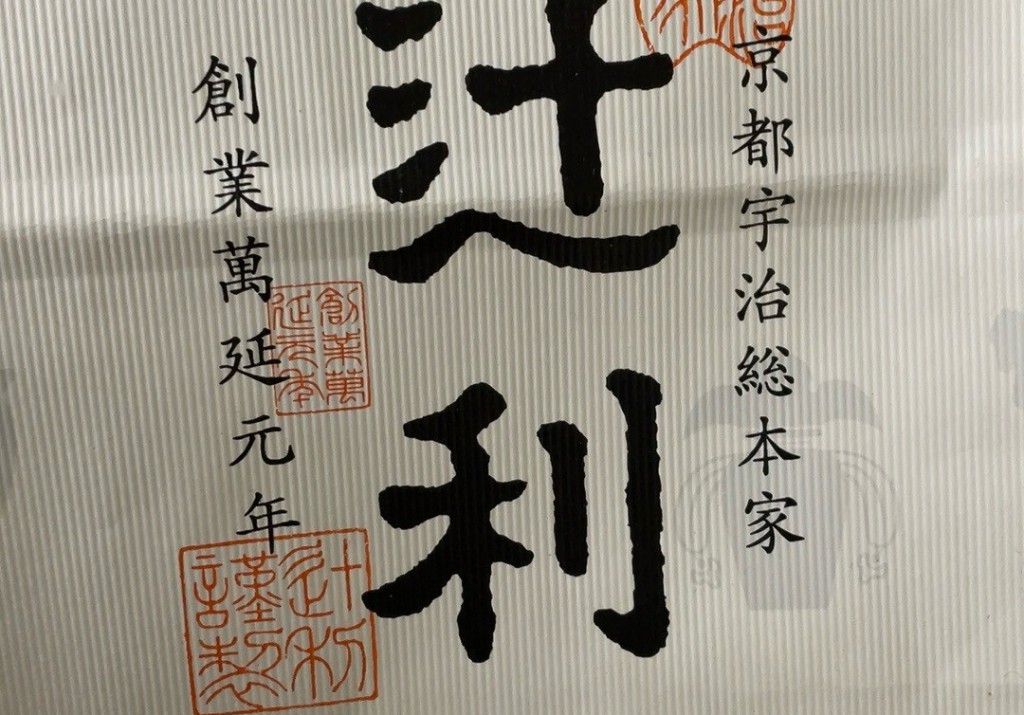 京都宇治総本家
辻利
創業萬延元年
創業萬
延元年
辻利
謹製